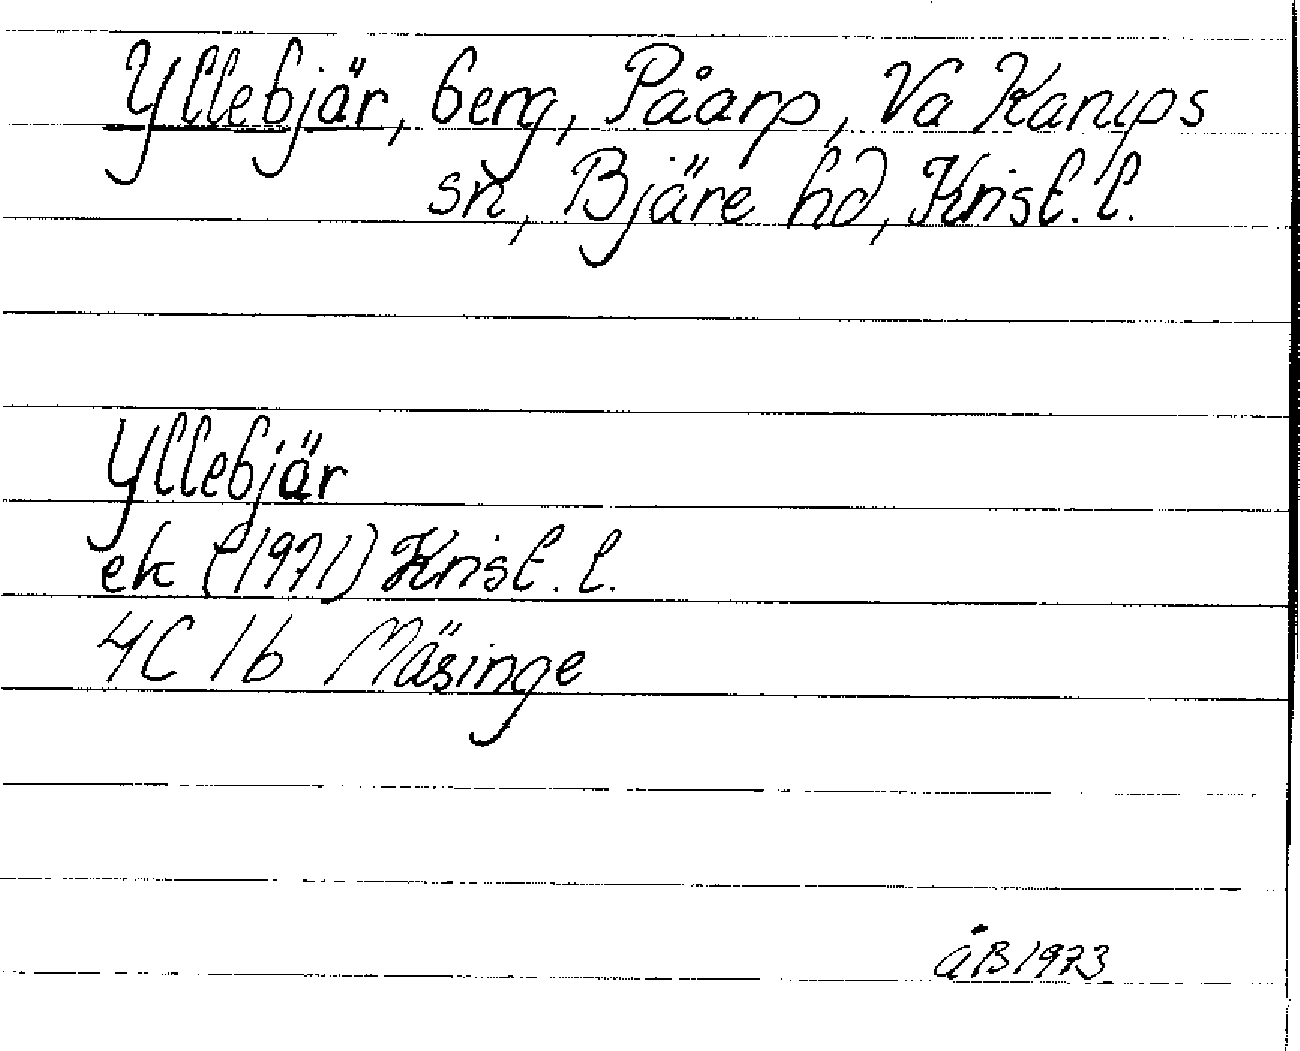 Yllebjär, berg, Påarp, Va Karups
sn, Bjäre hd, Krist. l.
Yllebjär
ek (1971) Krist. l.
4C 1b Mäsinge
åB 1973